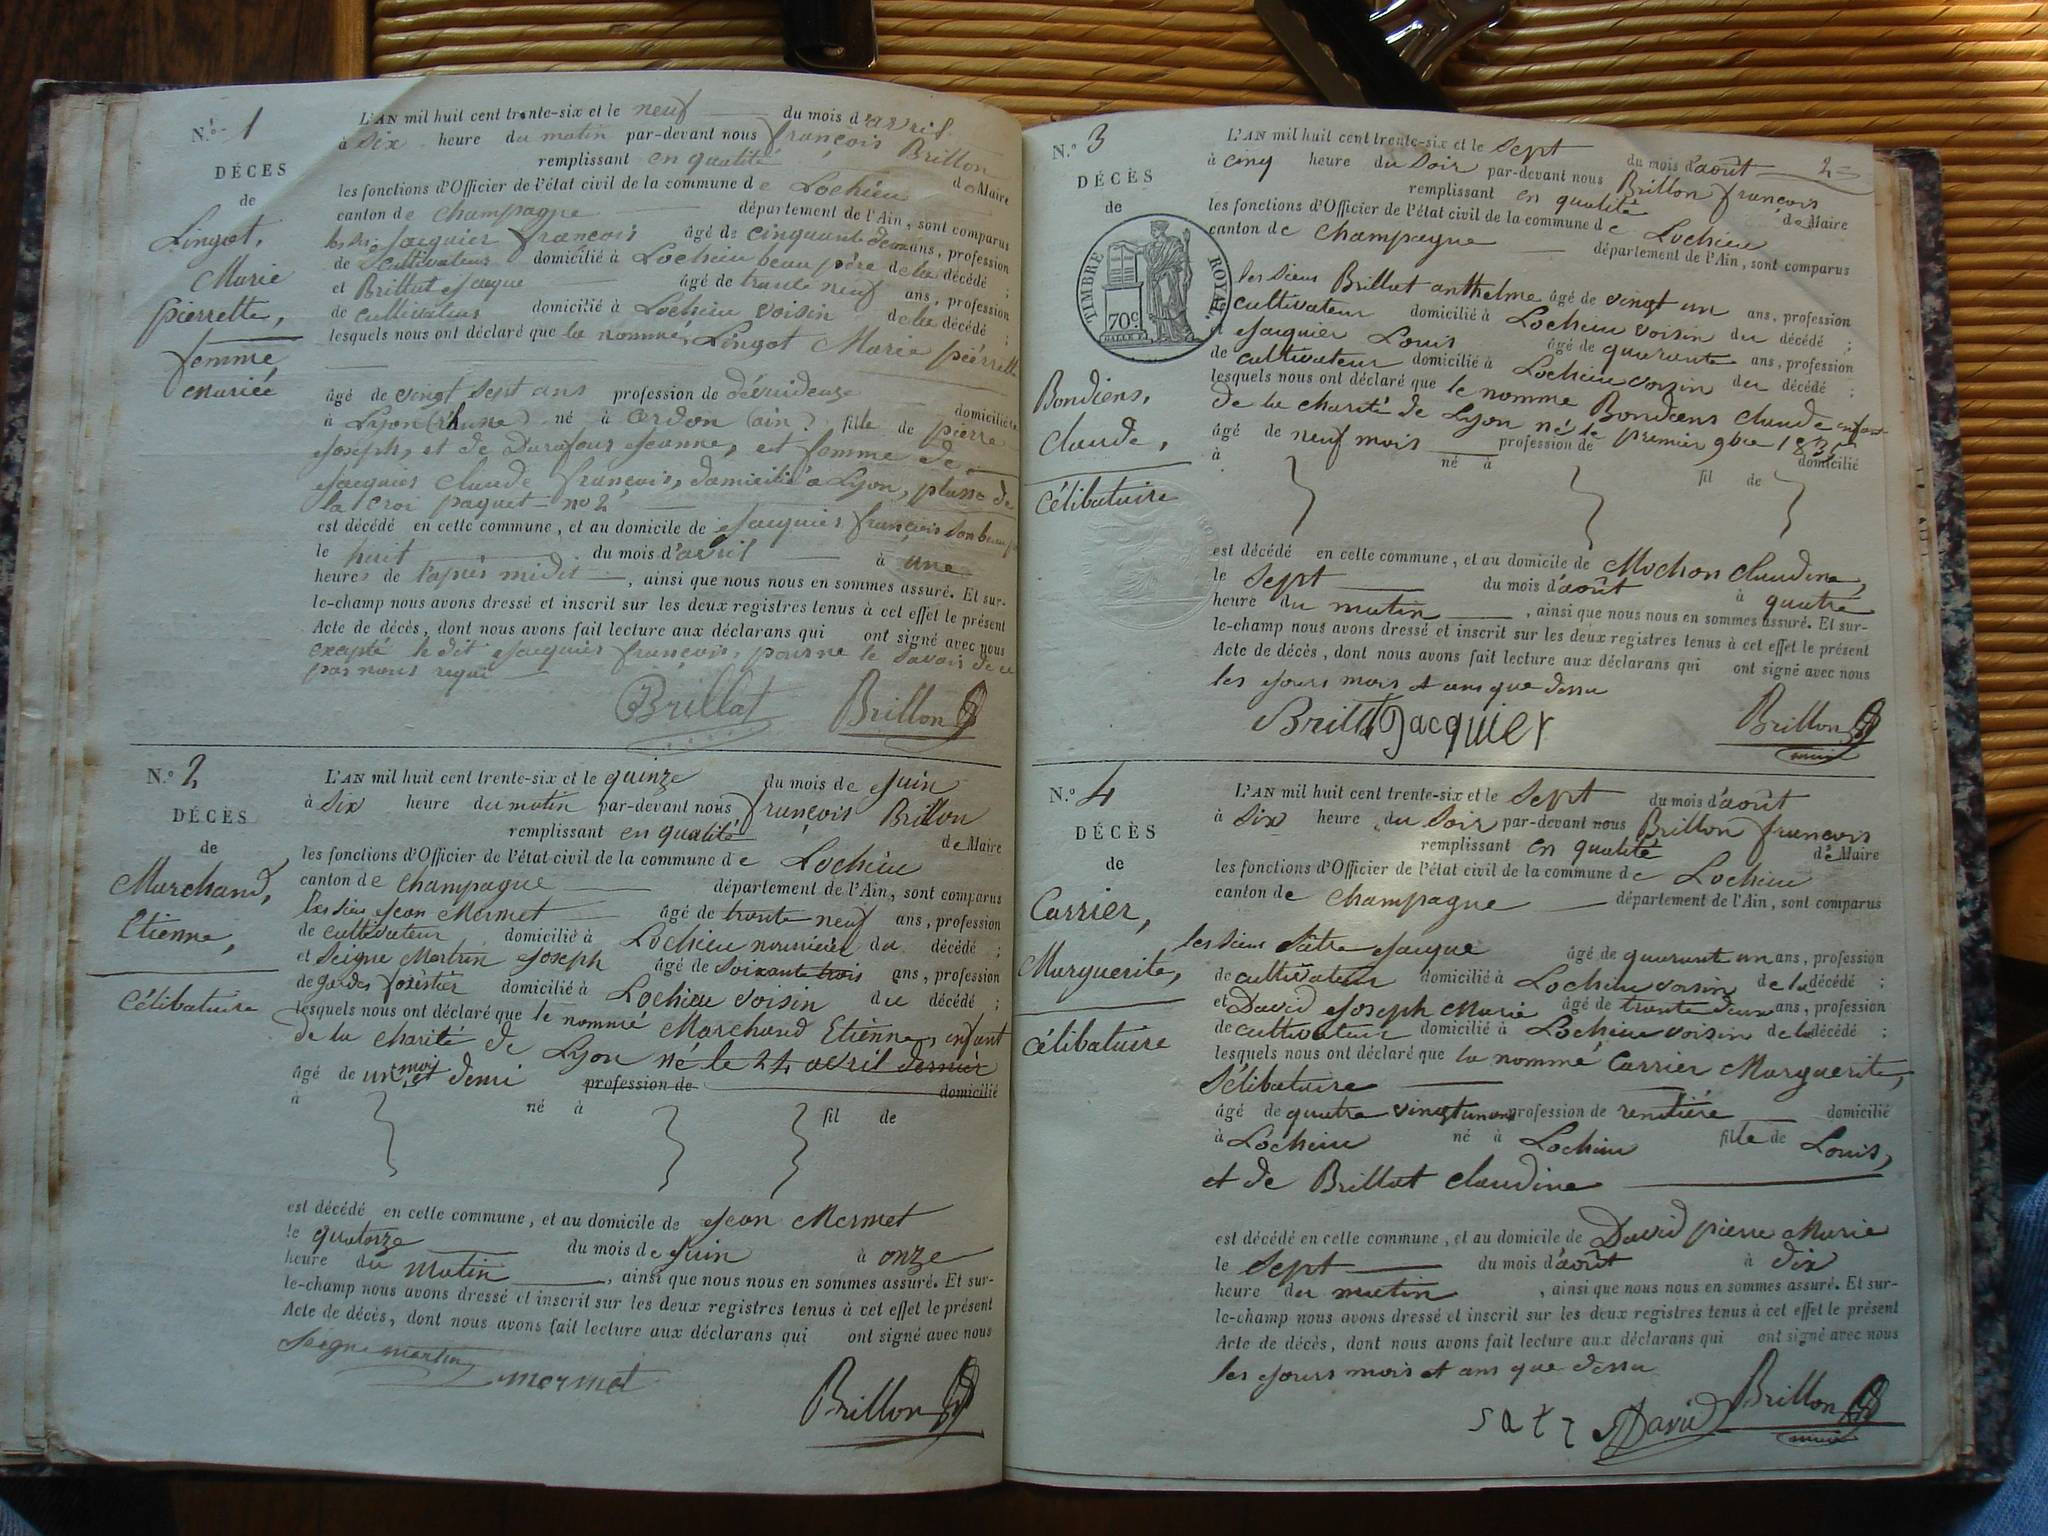 N.º 1
DÉCES
de
Lingot,
Marie
pierrette,
femme
mariée
L'AN mil huit cent trente-six et le neuf du mois d'avril
à six heure du matin par-devant nous françois Brillon
remplissant en qualité de Maire
les fonctions d'Officier de l'état civil de la commune de Lochieu
canton de champagne département de l'Ain, sont comparus
les srs Jacquier françois âgé de cinquante deux ans, profession
de Cultivateur domicilié à Lochieu beau père de la décédé ;
et Brillat Jaque âgé de trente neuf ans, profession
de cultivateur domicilié à Lochieu voisin de la décédé ;
lesquels nous ont déclaré que la nommé Lingot Marie pierrette
âgé de vingt sept ans profession de dévideuse domicilié
à Lyon (rhône) né à Cerdon (ain) fille de pierre
Joseph, et de Durafour Jeanne, et femme de
Jacquier Claude françois, domicilié à Lyon, plasse de
la Croi paquet no 2
est décédé en cette commune, et au domicile de Jacquier françois son beau
le huit du mois d'avril à une
heures de l'après midit, ainsi que nous nous en sommes assuré. Et sur-
le-champ nous avons dressé et inscrit sur les deux registres tenus à cet effet le présent
Acte de décès, dont nous avons fait lecture aux déclarans qui ont signé avec nous
excepté le dit Jacquier françois, pour ne le savoir de ce
par nous requi
Brillat Brillon
N.º 2
DÉCÈS
de
Marchand,
Etienne,
célibataire
L'AN mil huit cent trente-six et le quinze du mois de Juin
à six heure du matin par-devant nous françois Brillon
remplissant en qualité de Maire
les fonctions d'Officier de l'état civil de la commune de Lochieu
canton de champagne département de l'Ain, sont comparus
les sieu Jean Mermet âgé de trante neuf ans, profession
de cultivateur domicilié à Lochieu nourricier du décédé ;
et Seigne Martin Joseph âgé de soixante trois ans, profession
de gardes forestier domicilié à Lochieu voisin du décédé ;
lesquels nous ont déclaré que le nommé Marchand Etienne, enfant
de la charité de Lyon né le 24 avril dernier
âgé de un mois et demi profession de domicilié
à né à fil de
est décédé en cette commune, et au domicile de Jean Mermet
le quatorze du mois de Juin à onze
heure du matin, ainsi que nous nous en sommes assuré. Et sur-
le-champ nous avons dressé et inscrit sur les deux registres tenus à cet effet le présent
Acte de décès, dont nous avons fait lecture aux déclarans qui ont signé avec nous
Seigne martin mermet
Brillon
N.º 3
DÉCÈS
de
TIMBRE ROYAL
70 c.
Bondiens,
claude,
célibataire
2
L'AN mil huit cent trente-six et le sept du mois d'août
à cinq heure du soir par-devant nous Brillon françois
remplissant en qualité de Maire
les fonctions d'Officier de l'état civil de la commune de Lochieu
canton de champagne département de l'Ain, sont comparus
les sieurs Brillat anthelme âgé de vingt un ans, profession
cultivateur domicilié à Lochieu voisin du décédé ;
et Jacquier Louis âgé de quarante ans, profession
de cultivateur domicilié à Lochieu voisin du décédé ;
lesquels nous ont déclaré que le nomme Bondiens claude enfant
de la charité de Lyon né le premier 9bre 1835
âgé de neuf mois profession de domicilié
à né à fil de
est décédé en cette commune, et au domicile de Mochon claudine,
le sept du mois d'août à quatre
heure du matin, ainsi que nous nous en sommes assuré. Et sur-
le-champ nous avons dressé et inscrit sur les deux registres tenus à cet effet le présent
Acte de décès, dont nous avons fait lecture aux déclarans qui ont signé avec nous
les jours mois et ans que dessu
Brillat Jacquier Brillon
N.º 4
DÉCÈS
de
Carrier,
Marguerite,
célibataire
L'AN mil huit cent trente-six et le sept du mois d'août
à six heure du soir par-devant nous Brillon francois
remplissant en qualité de Maire
les fonctions d'Officier de l'état civil de la commune de Lochieu
canton de champagne département de l'Ain, sont comparus
les sieur Sâtre Jaque âgé de quarant un ans, profession
de cultivateur domicilié à Lochieu voisin de la décédé ;
et David Joseph Marie âgé de trente deux ans, profession
de cultivateur domicilié à Lochieu voisin de la décédé ;
lesquels nous ont déclaré que la nommé Carrier Marguerite,
Sélibataire
âgé de quatre vingt un ans profession de rentière domicilié
à Lochieu né à Lochieu fille de Louis,
et de Brillat claudine
est décédé en cette commune, et au domicile de David pierre Marie
le sept du mois d'août à dix
heure du matin, ainsi que nous nous en sommes assuré. Et sur-
le-champ nous avons dressé et inscrit sur les deux registres tenus à cet effet le présent
Acte de décès, dont nous avons fait lecture aux déclarans qui ont signé avec nous
les jours mois et ans que dessu
David Brillon